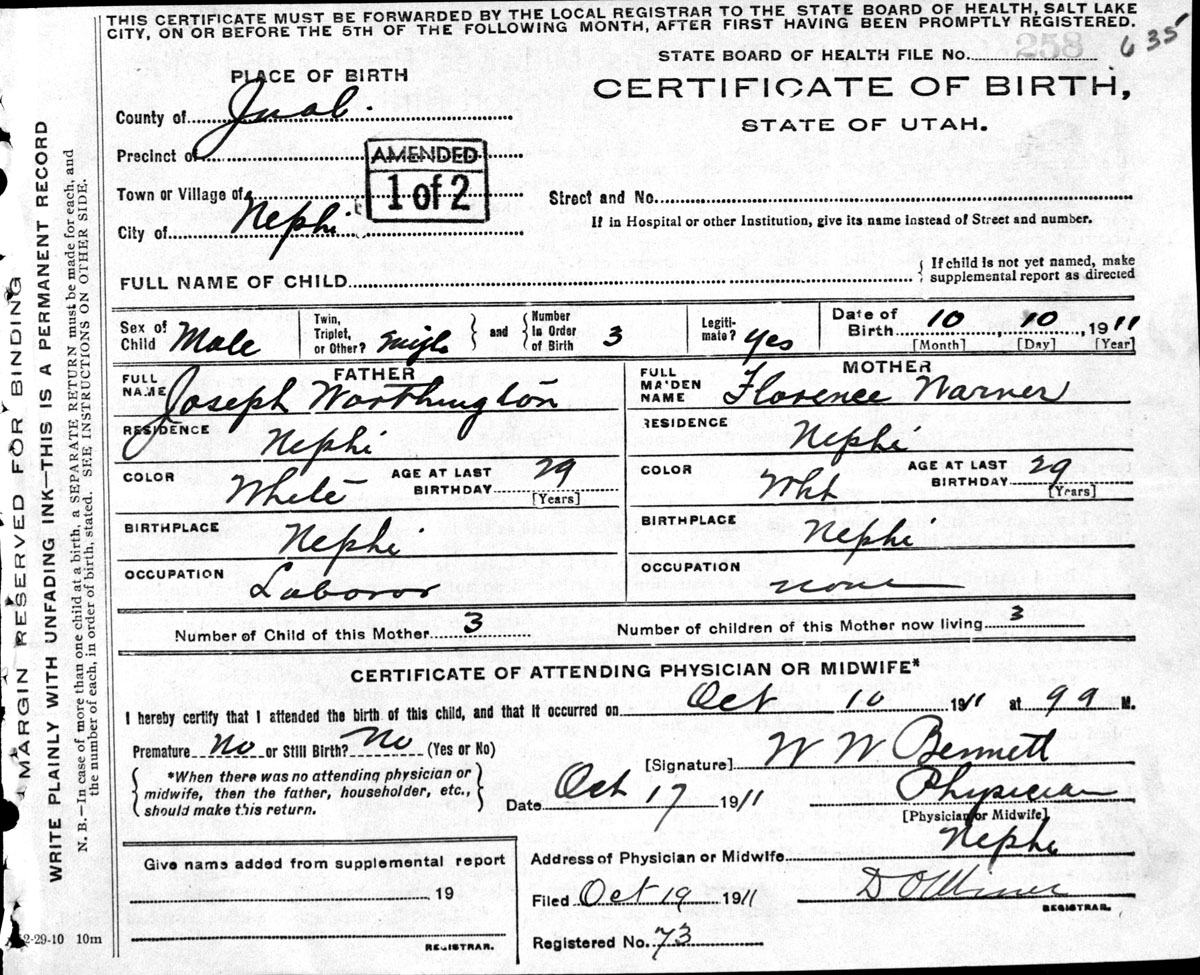 THIS CERTIFICATE MUST BE FORWARDED BY THE LOCAL REGISTRAR TO THE STATE BOARD OF HEALTH, SALT LAKE
CITY, ON OR BEFORE THE 5TH OF THE FOLLOWING MONTH, AFTER FIRST HAVING BEEN PROMPTLY REGISTERED.
STATE BOARD OF HEALTH FILE No. 258 635
PLACE OF BIRTH
CERTIFICATE OF BIRTH,
STATE OF UTAH.
County of Juab.
Precinct of
AMENDED
1 of 2
Town or Village of
Street and No.
City of Nephi
If in Hospital or other Institution, give its name instead of Street and number.
FULL NAME OF CHILD
{ If child is not yet named, make
supplemental report as directed
Sex of Child Male
Twin, Triplet, or Other?
} and { Number In Order of Birth 3
Legiti-mate? Yes
Date of Birth 10 10, 1911
[Month] [Day] [Year]
FATHER
MOTHER
FULL NAME Joseph Worthington
FULL MAIDEN NAME Florence Warner
RESIDENCE Nephi
RESIDENCE Nephi
COLOR White
AGE AT LAST BIRTHDAY 29
[Years]
COLOR Wht
AGE AT LAST BIRTHDAY 29
[Years]
BIRTHPLACE Nephi
BIRTHPLACE Nephi
OCCUPATION Laboror
OCCUPATION none
Number of Child of this Mother 3
Number of children of this Mother now living 3
CERTIFICATE OF ATTENDING PHYSICIAN OR MIDWIFE*
I hereby certify that I attended the birth of this child, and that it occurred on Oct 10 1911 at M.
Premature No or Still Birth? No (Yes or No)
[Signature] W W Bennett
{ *When there was no attending physician or
midwife, then the father, householder, etc.,
should make this return. }
Date Oct 17 1911
Physician
[Physician or Midwife]
Give name added from supplemental report
19
REGISTRAR.
Address of Physician or Midwife Nephi
Filed Oct 19 1911
REGISTRAR.
Registered No. 73
2-29-10 10m
MARGIN RESERVED FOR BINDING
WRITE PLAINLY WITH UNFADING INK—THIS IS A PERMANENT RECORD
N. B.—In case of more than one child at a birth, a SEPARATE RETURN must be made for each, and
the number of each, in order of birth, stated. SEE INSTRUCTIONS ON OTHER SIDE.